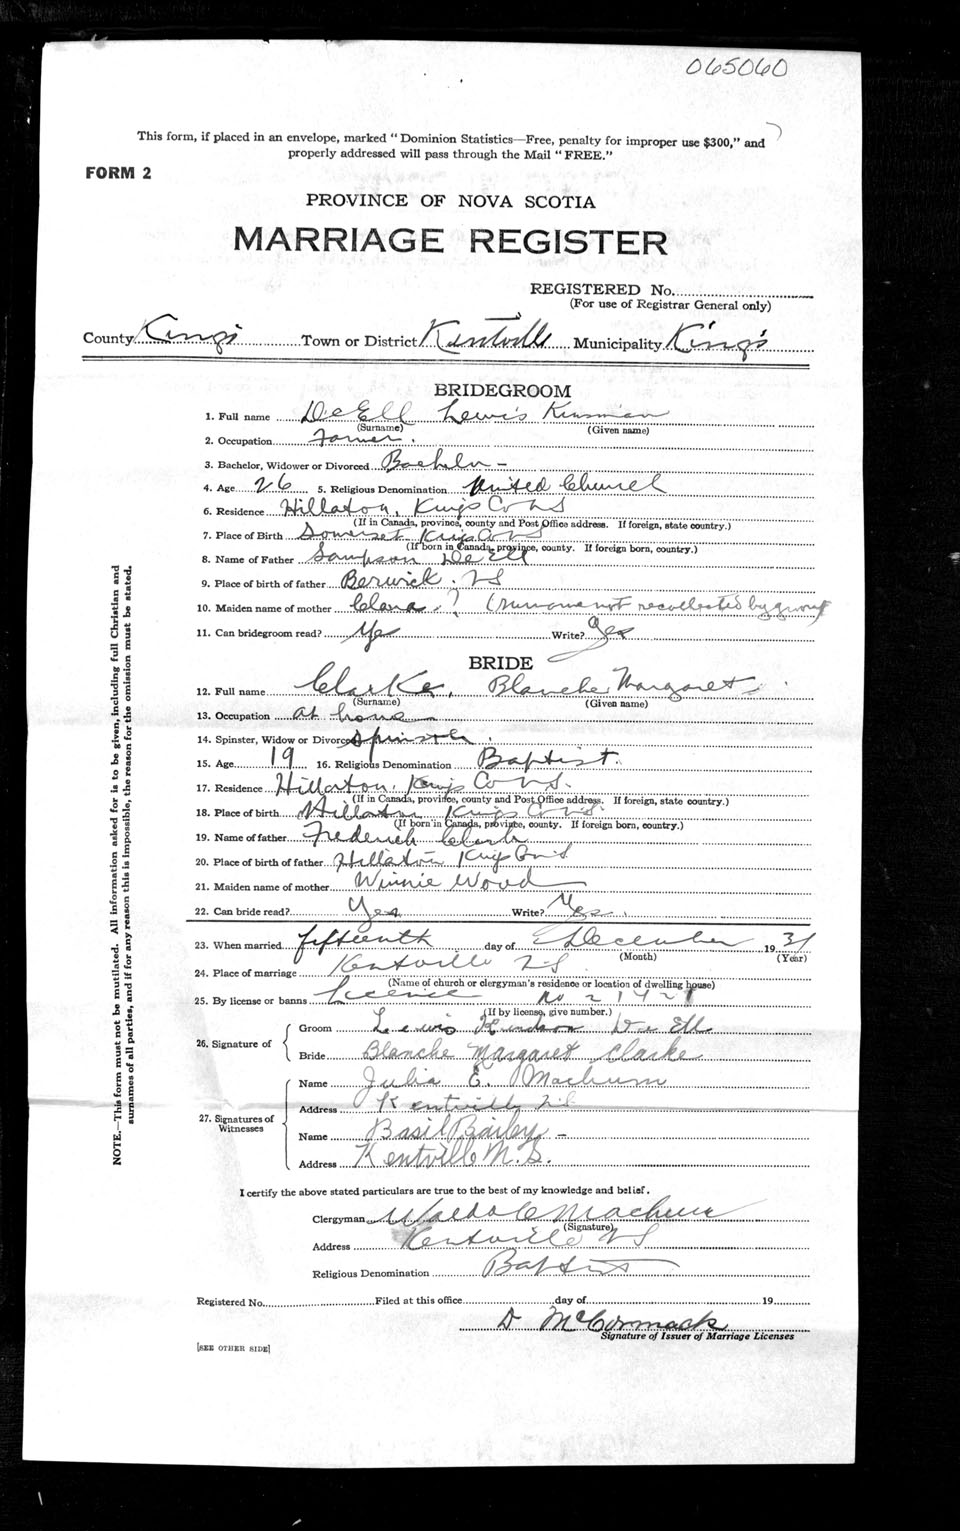 065060
This form, if placed in an envelope, marked "Dominion Statistics—Free, penalty for improper use $300," and
properly addressed will pass through the Mail "FREE."
FORM 2
PROVINCE OF NOVA SCOTIA
MARRIAGE REGISTER
REGISTERED No.
(For use of Registrar General only)
County Kings Town or District Kentville Municipality King's
BRIDEGROOM
1. Full name DeEll Lewis Kinsman
(Surname) (Given name)
2. Occupation Farmer.
3. Bachelor, Widower or Divorced Bachelor -
4. Age 26 5. Religious Denomination United Church
6. Residence Hillaton, Kings Co NS
(If in Canada, province, county and Post Office address. If foreign, state country.)
7. Place of Birth Somerset Kings Co NS
(If born in Canada, province, county. If foreign born, country.)
8. Name of Father Sampson DeEll
9. Place of birth of father Berwick. NS
10. Maiden name of mother Clara ? ( not recollected by groom
11. Can bridegroom read? Yes Write? Yes
BRIDE
12. Full name Clarke, Blanche Margaret
(Surname) (Given name)
13. Occupation at home
14. Spinster, Widow or Divorced Spinster.
15. Age 19 16. Religious Denomination Baptist.
17. Residence Hillaton, Kings Co NS.
(If in Canada, province, county and Post Office address. If foreign, state country.)
18. Place of birth Hillaton Kings Co NS.
(If born in Canada, province, county. If foreign born, country.)
19. Name of father Frederick Clarke
20. Place of birth of father Hillaton Kings Co NS
21. Maiden name of mother Winnie Wood
22. Can bride read? Yes Write? Yes.
23. When married fifteenth day of December 1931
(Month) (Year)
24. Place of marriage Kentville NS
(Name of church or clergyman's residence or location of dwelling house)
25. By license or banns License No 21421
(If by license, give number.)
26. Signature of
Groom Lewis DeEll
Bride Blanche Margaret Clarke
27. Signatures of Witnesses
Name Julia E. Machum
Address Kentville NS
Name Basil Bailey -
Address Kentville N.S.
I certify the above stated particulars are true to the best of my knowledge and belief.
Clergyman Waldo C Machum
(Signature)
Address Kentville NS
Religious Denomination Baptist
Registered No. Filed at this office day of 19
D McCormack
Signature of Issuer of Marriage Licenses
[SEE OTHER SIDE]
NOTE.—This form must not be mutilated. All information asked for is to be given, including full Christian and
surnames of all parties, and if for any reason this is impossible, the reason for the omission must be stated.